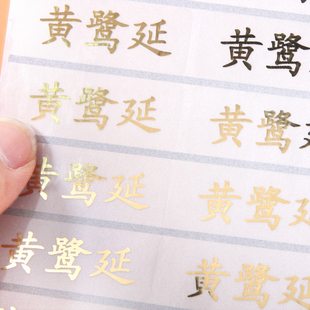 黄鹭延 黄鹭延
黄鹭延 黄鹭延
黄鹭延 黄鹭延
黄鹭延 黄鹭延